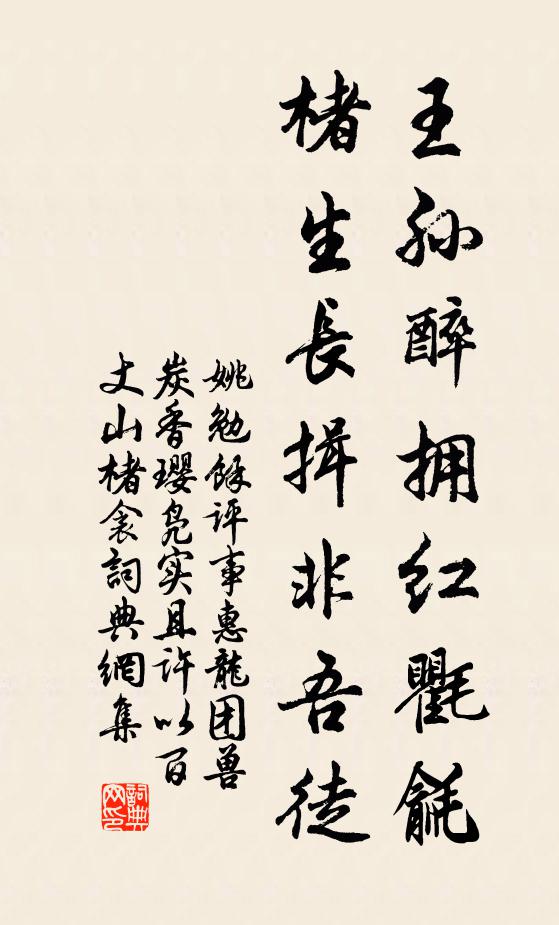 王孙醉拥红氍毹
楮生長揖非吾徒
姚勉餘评事惠龍团兽
炭香璎凫实且许以百
丈山楮衾詞典網集
詞典
网印